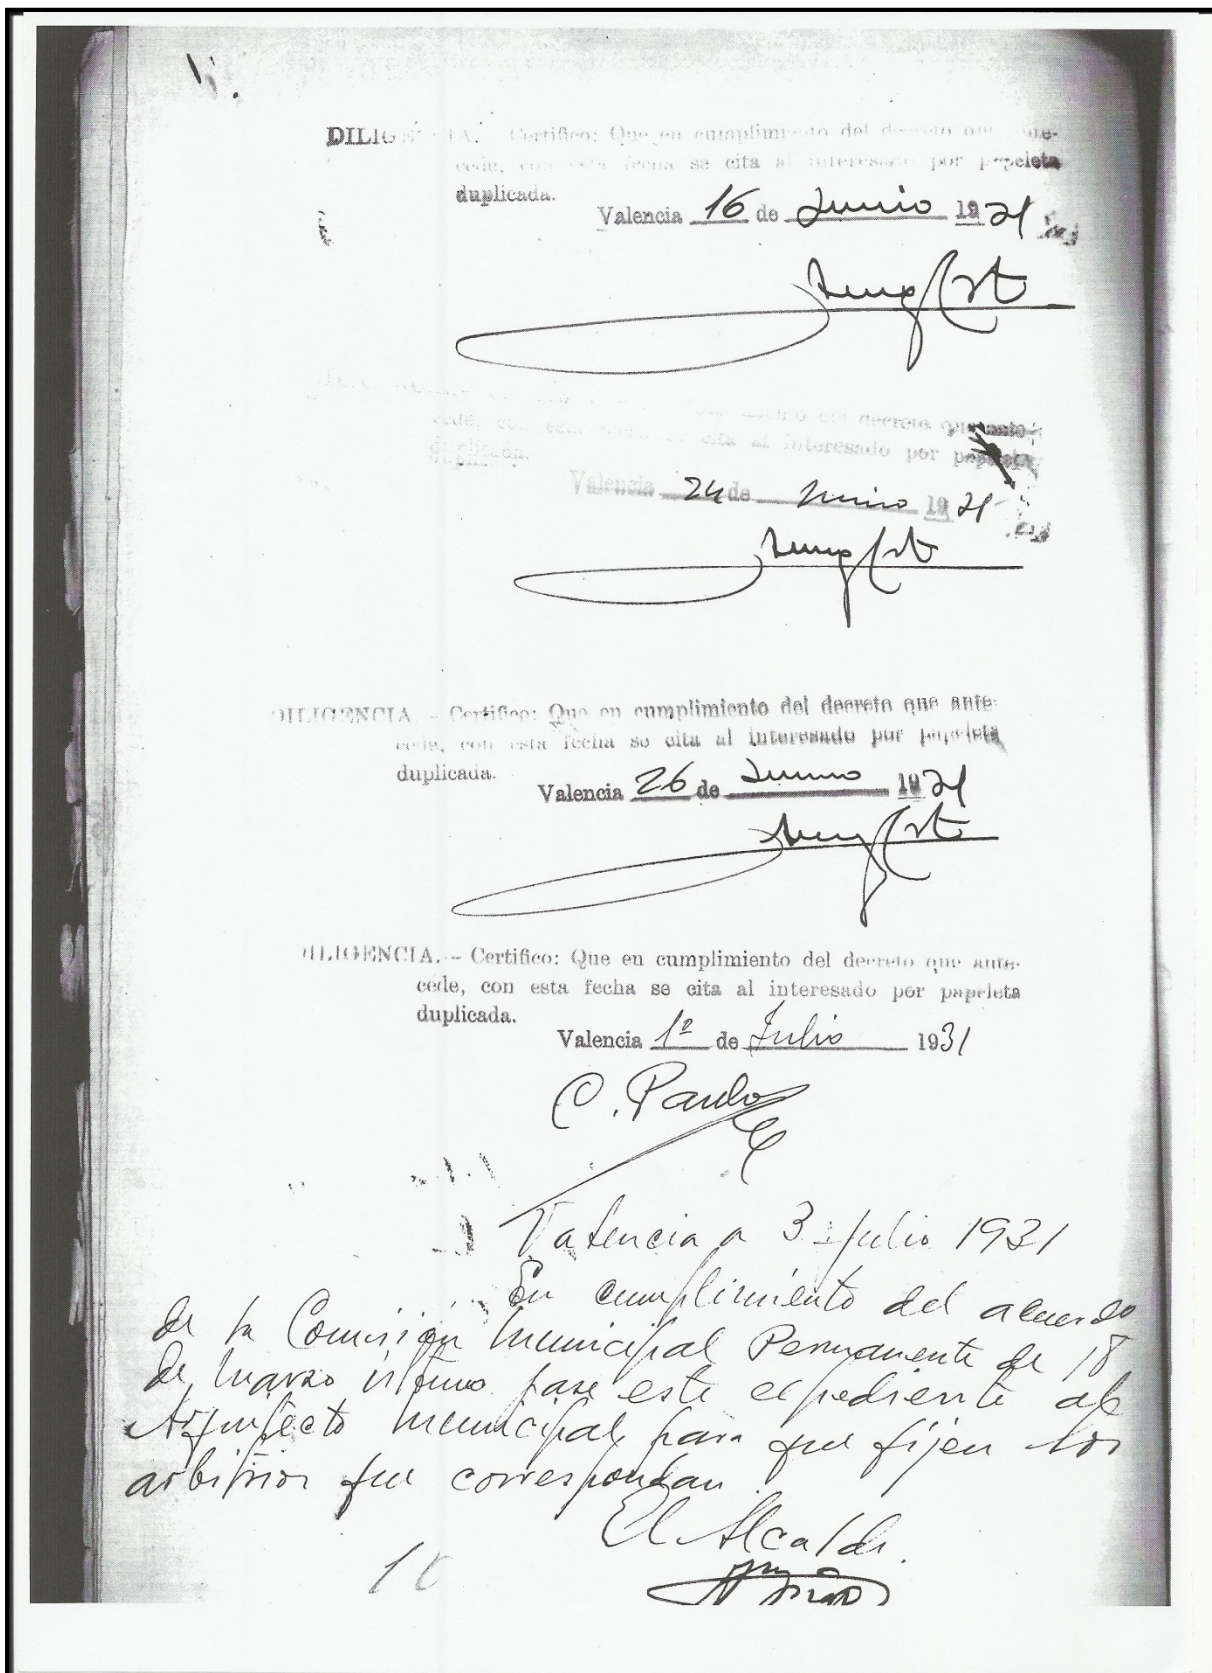 DILIGENCIA. - Certifico: Que en cumplimiento del decreto que ante-
cede, con esta fecha se cita al interesado por papeleta
duplicada.
Valencia 16 de Junio 1931
decreto que ante-
cede, con esta se cita al interesado por papeleta
duplicada.
Valencia 24 de Junio 1931
DILIGENCIA - Certifico: Que en cumplimiento del decreto que ante-
cede, con esta fecha se cita al interesado por papeleta
duplicada.
Valencia 26 de Junio 1931
DILIGENCIA. - Certifico: Que en cumplimiento del decreto que ante-
cede, con esta fecha se cita al interesado por papeleta
duplicada.
Valencia 1º de Julio 1931
C. Pardo
Valencia a 3 julio 1931
En cumplimiento del acuerdo
de la Comisión Municipal Permanente de 18
de Marzo último pase este expediente al
Arquitecto Municipal para que fijen los
arbitrios que correspondan.
El Alcalde.